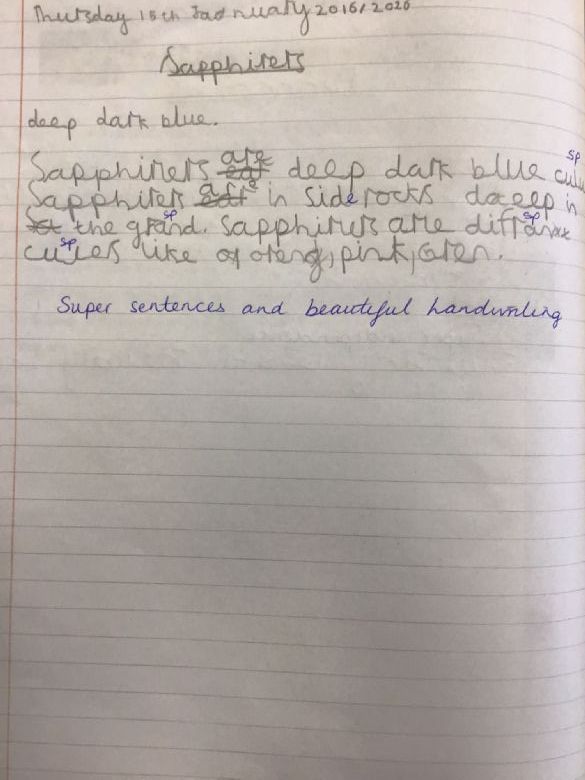 Thursday 15th Jadnuary 2016/2020
Sapphirers
deep dark blue.
sp
Sapphirers are deep dark blue culu
Sapphirers are in side rocks daeep in
sp sp
the grand. Sapphirurs are diffranx
sp
cules like of oreng, pink, Gren.
Super sentences and beautiful handwriting